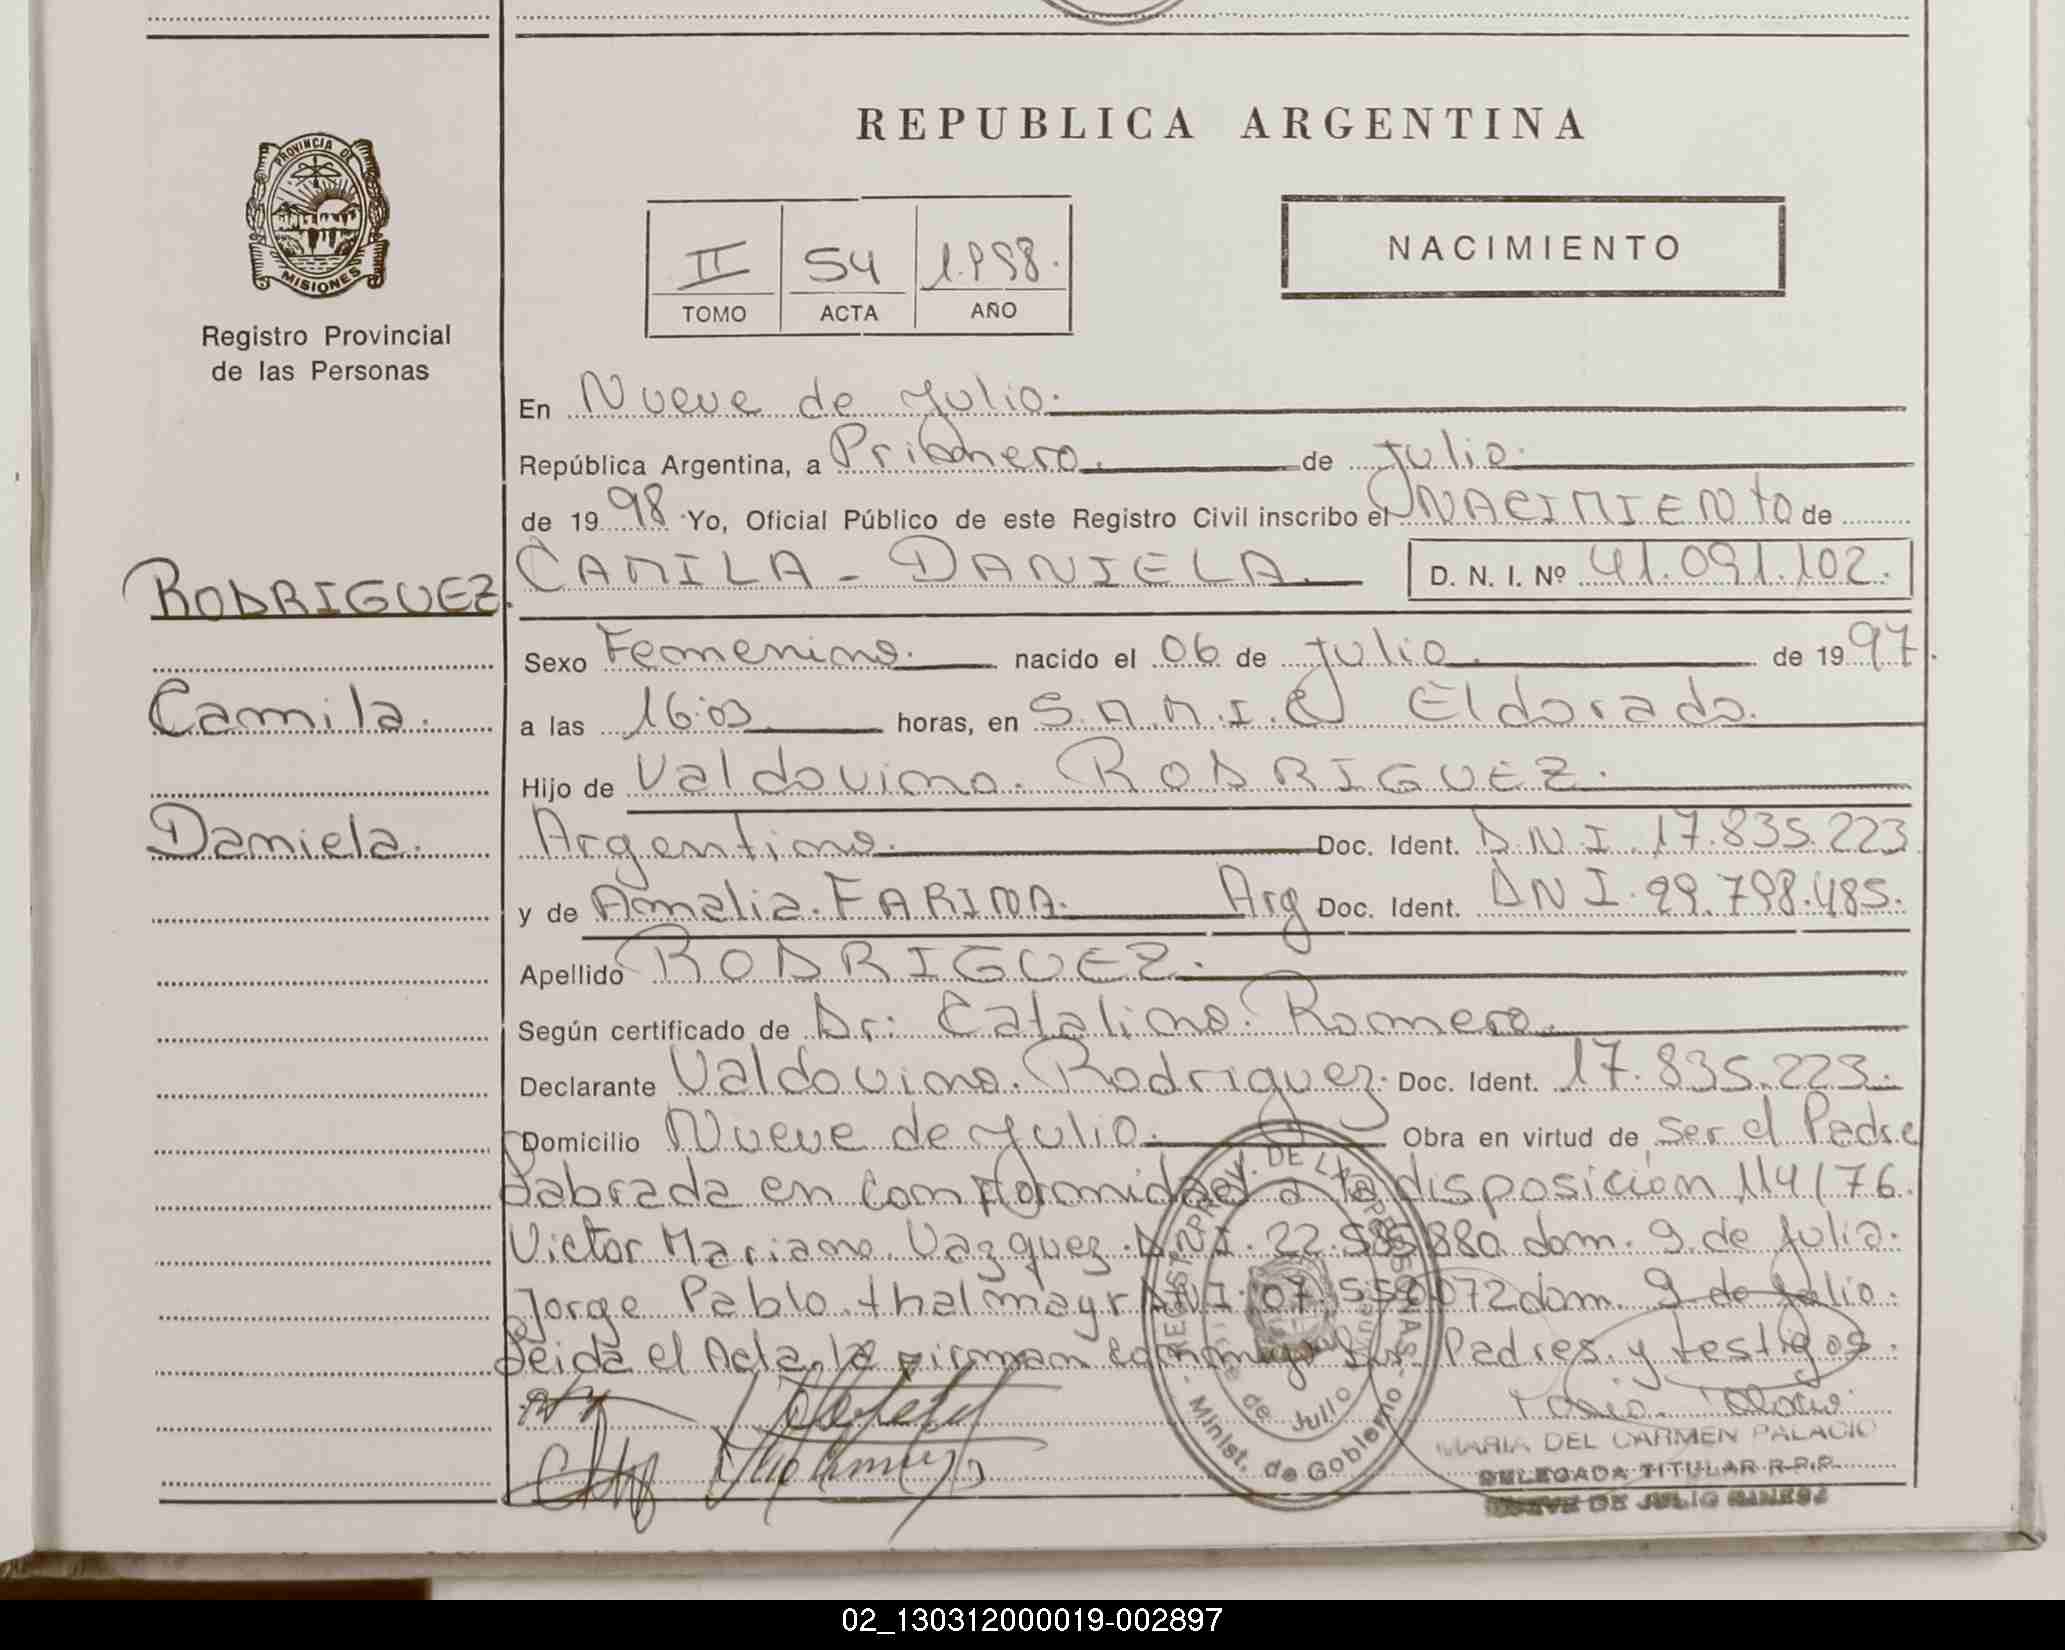 REPUBLICA ARGENTINA
PROVINCIA DE MISIONES
Registro Provincial
de las Personas
II 54 1.998.
TOMO ACTA AÑO
NACIMIENTO
En Nueve de Julio.
República Argentina, a Primero. de Julio.
de 1998 Yo, Oficial Público de este Registro Civil inscribo el NACIMIENTO de
RODRIGUEZ. CAMILA - DANIELA. D. N. I. Nº 41.091.102.
Sexo Femenino. nacido el 06 de Julio. de 1997.
Camila. a las 16:03 horas, en S.A.M.I.C Eldorado.
Hijo de Valdovino. RODRIGUEZ.
Daniela. Argentino. Doc. Ident. D.N.I. 17.835.223
y de Amalia. FARINA. Arg Doc. Ident. DNI. 29.798.485.
Apellido RODRIGUEZ.
Según certificado de Dr: Catalino. Romero.
Declarante Valdovino. Rodriguez. Doc. Ident. 17.835.223.
Domicilio Nueve de Julio. Obra en virtud de Ser el Padre
Labrada en Conformidad a la disposición 114/76.
Victor Mariano. Vazquez. D.N.I. 22. 880 dom. 9. de Julio.
Jorge Pablo. thalmayr D.N.I. 07. 072 dom. 9 de Julio.
Leida el Acta, la firman conmigo Los Padres. y testigos.
REGIST. PROV. DE LAS PERSONAS
Nueve de Julio
- Minist. de Gobierno -
MARIA DEL CARMEN PALACIO
DELEGADA TITULAR R.P.P.
NUEVE DE JULIO
02_130312000019-002897